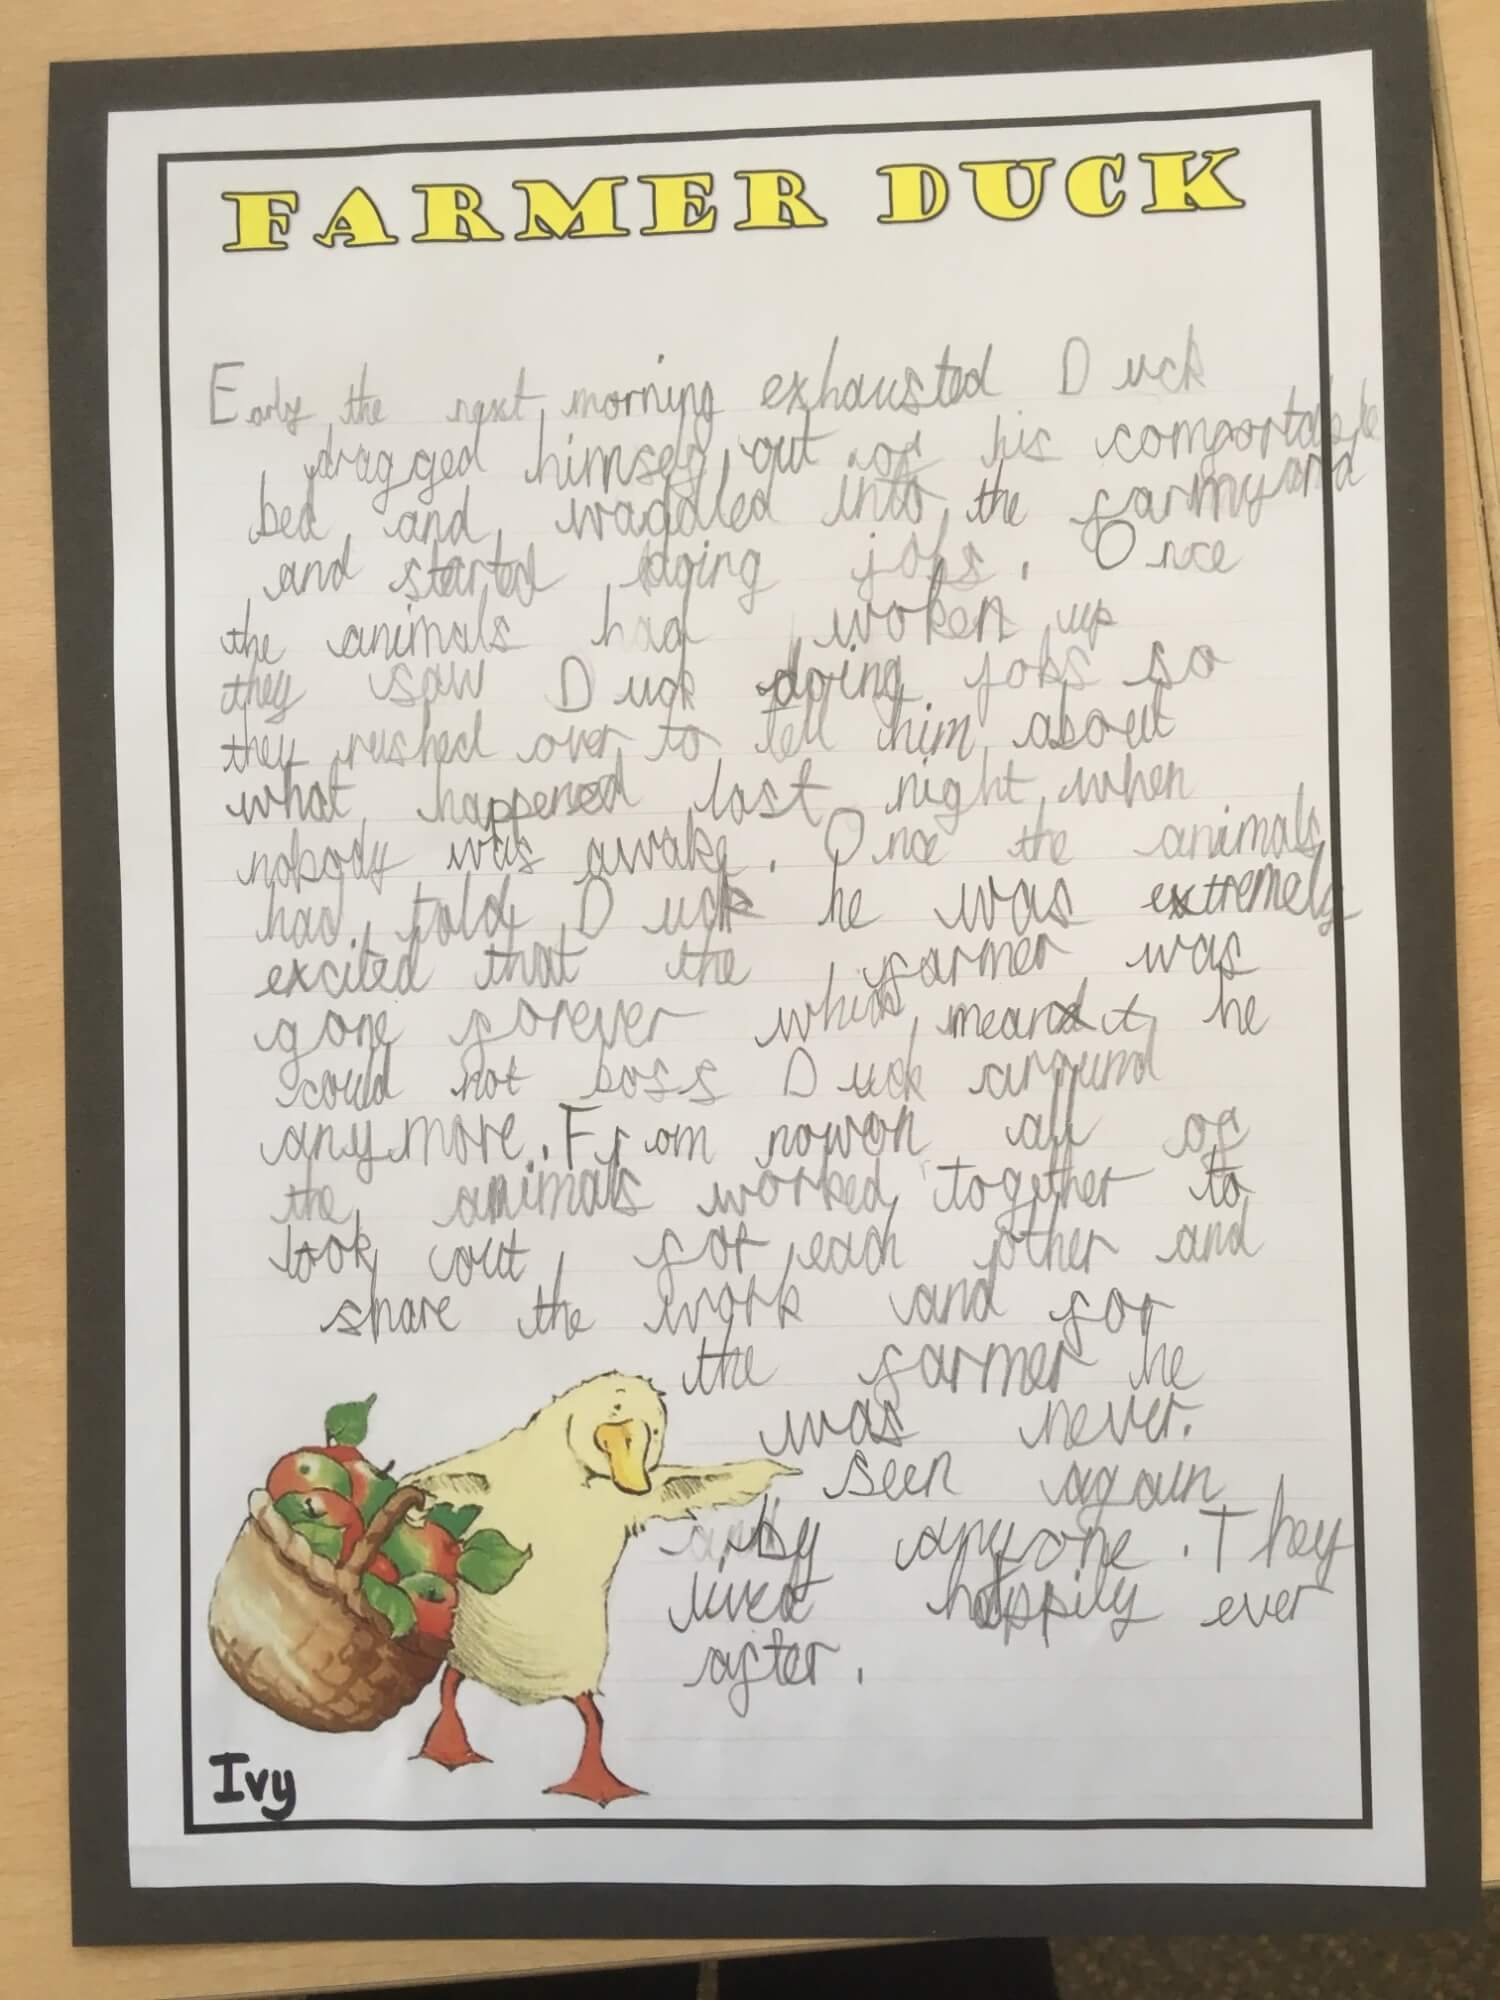 FARMER DUCK
Early the next morning exhausted Duck
dragged himself out of his comfortable
bed and waddled into the farmyard
and started doing jobs. Once
the animals had woken up
they saw Duck doing jobs so
they rushed over to tell him about
what happened last night when
nobody was awake. Once the animals
had told Duck he was extremely
excited that the farmer was
gone forever which meant he
could not boss Duck around
anymore. From nowon all of
the animals worked together to
look out for each other and
share the work and for
the farmer he
was never.
seen again
by anyone. They
lived happily ever
after.
Ivy